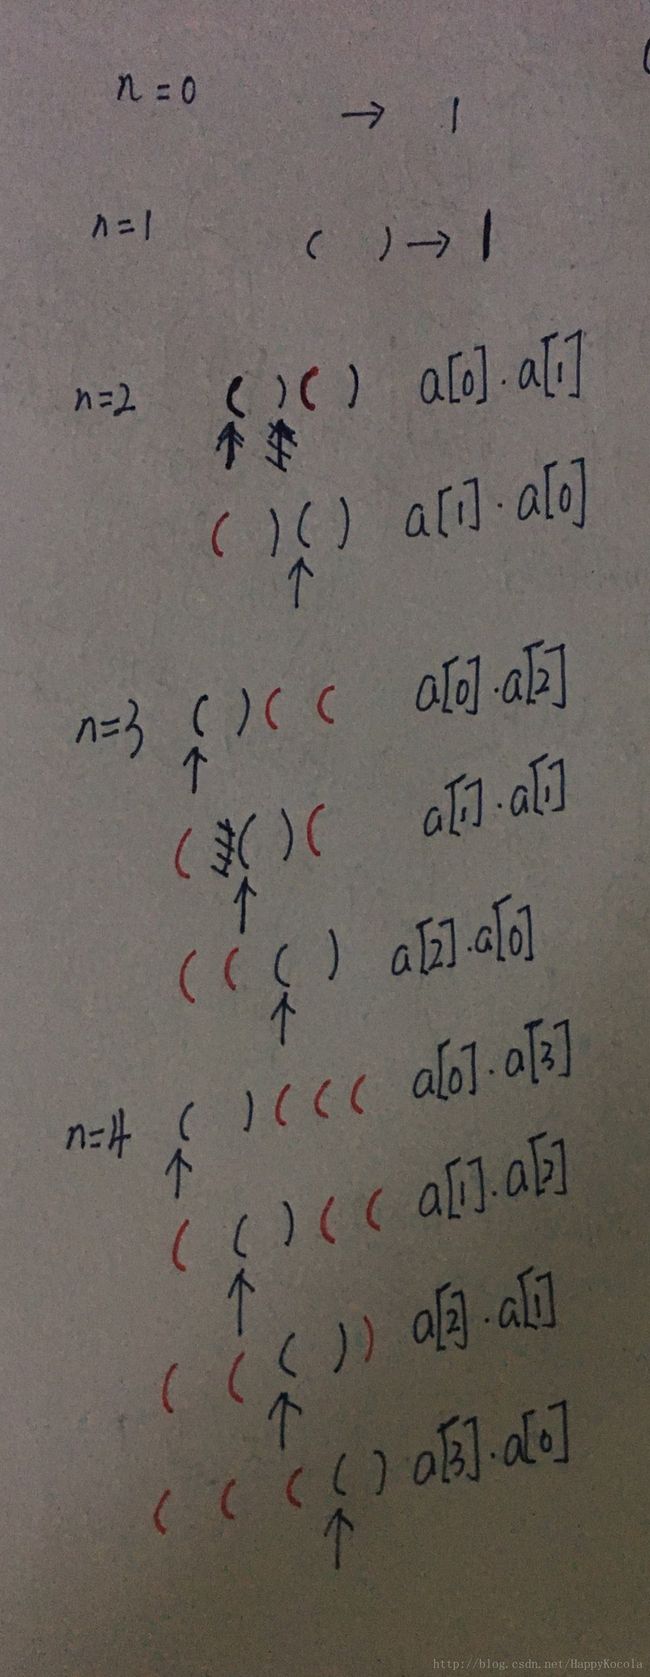 n=0 → 1
n=1 ( ) → 1
n=2 ( ) ( ) a[0]·a[1]
( ) ( ) a[1]·a[0]
↑
n=3 ( ) ( ( a[0]·a[2]
↑
( ( ) ( a[1]·a[1]
↑
( ( ( ) a[2]·a[0]
↑
n=4 ( ) ( ( ( a[0]·a[3]
↑
( ( ) ( ( a[1]·a[2]
↑
( ( ( ) ) a[2]·a[1]
↑
( ( ( ( ) a[3]·a[0]
↑
http://blog.csdn.net/HappyKocola